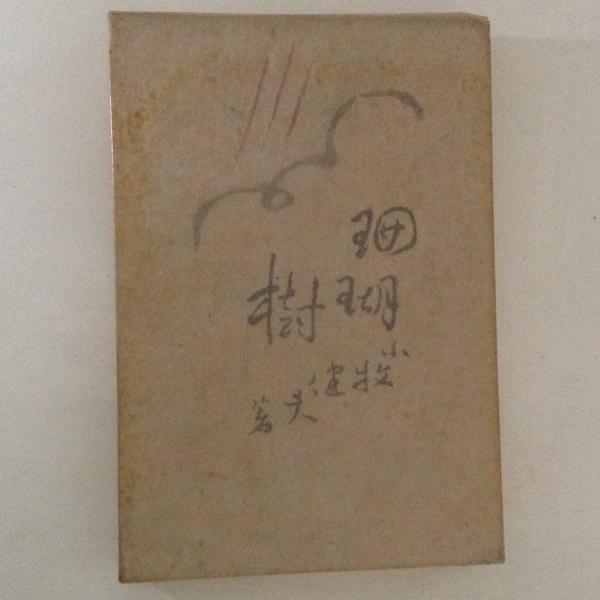 珊瑚
樹
小牧
健夫
著